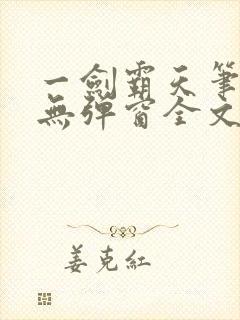 一劍霸天筆
無彈窗全文
姜克紅